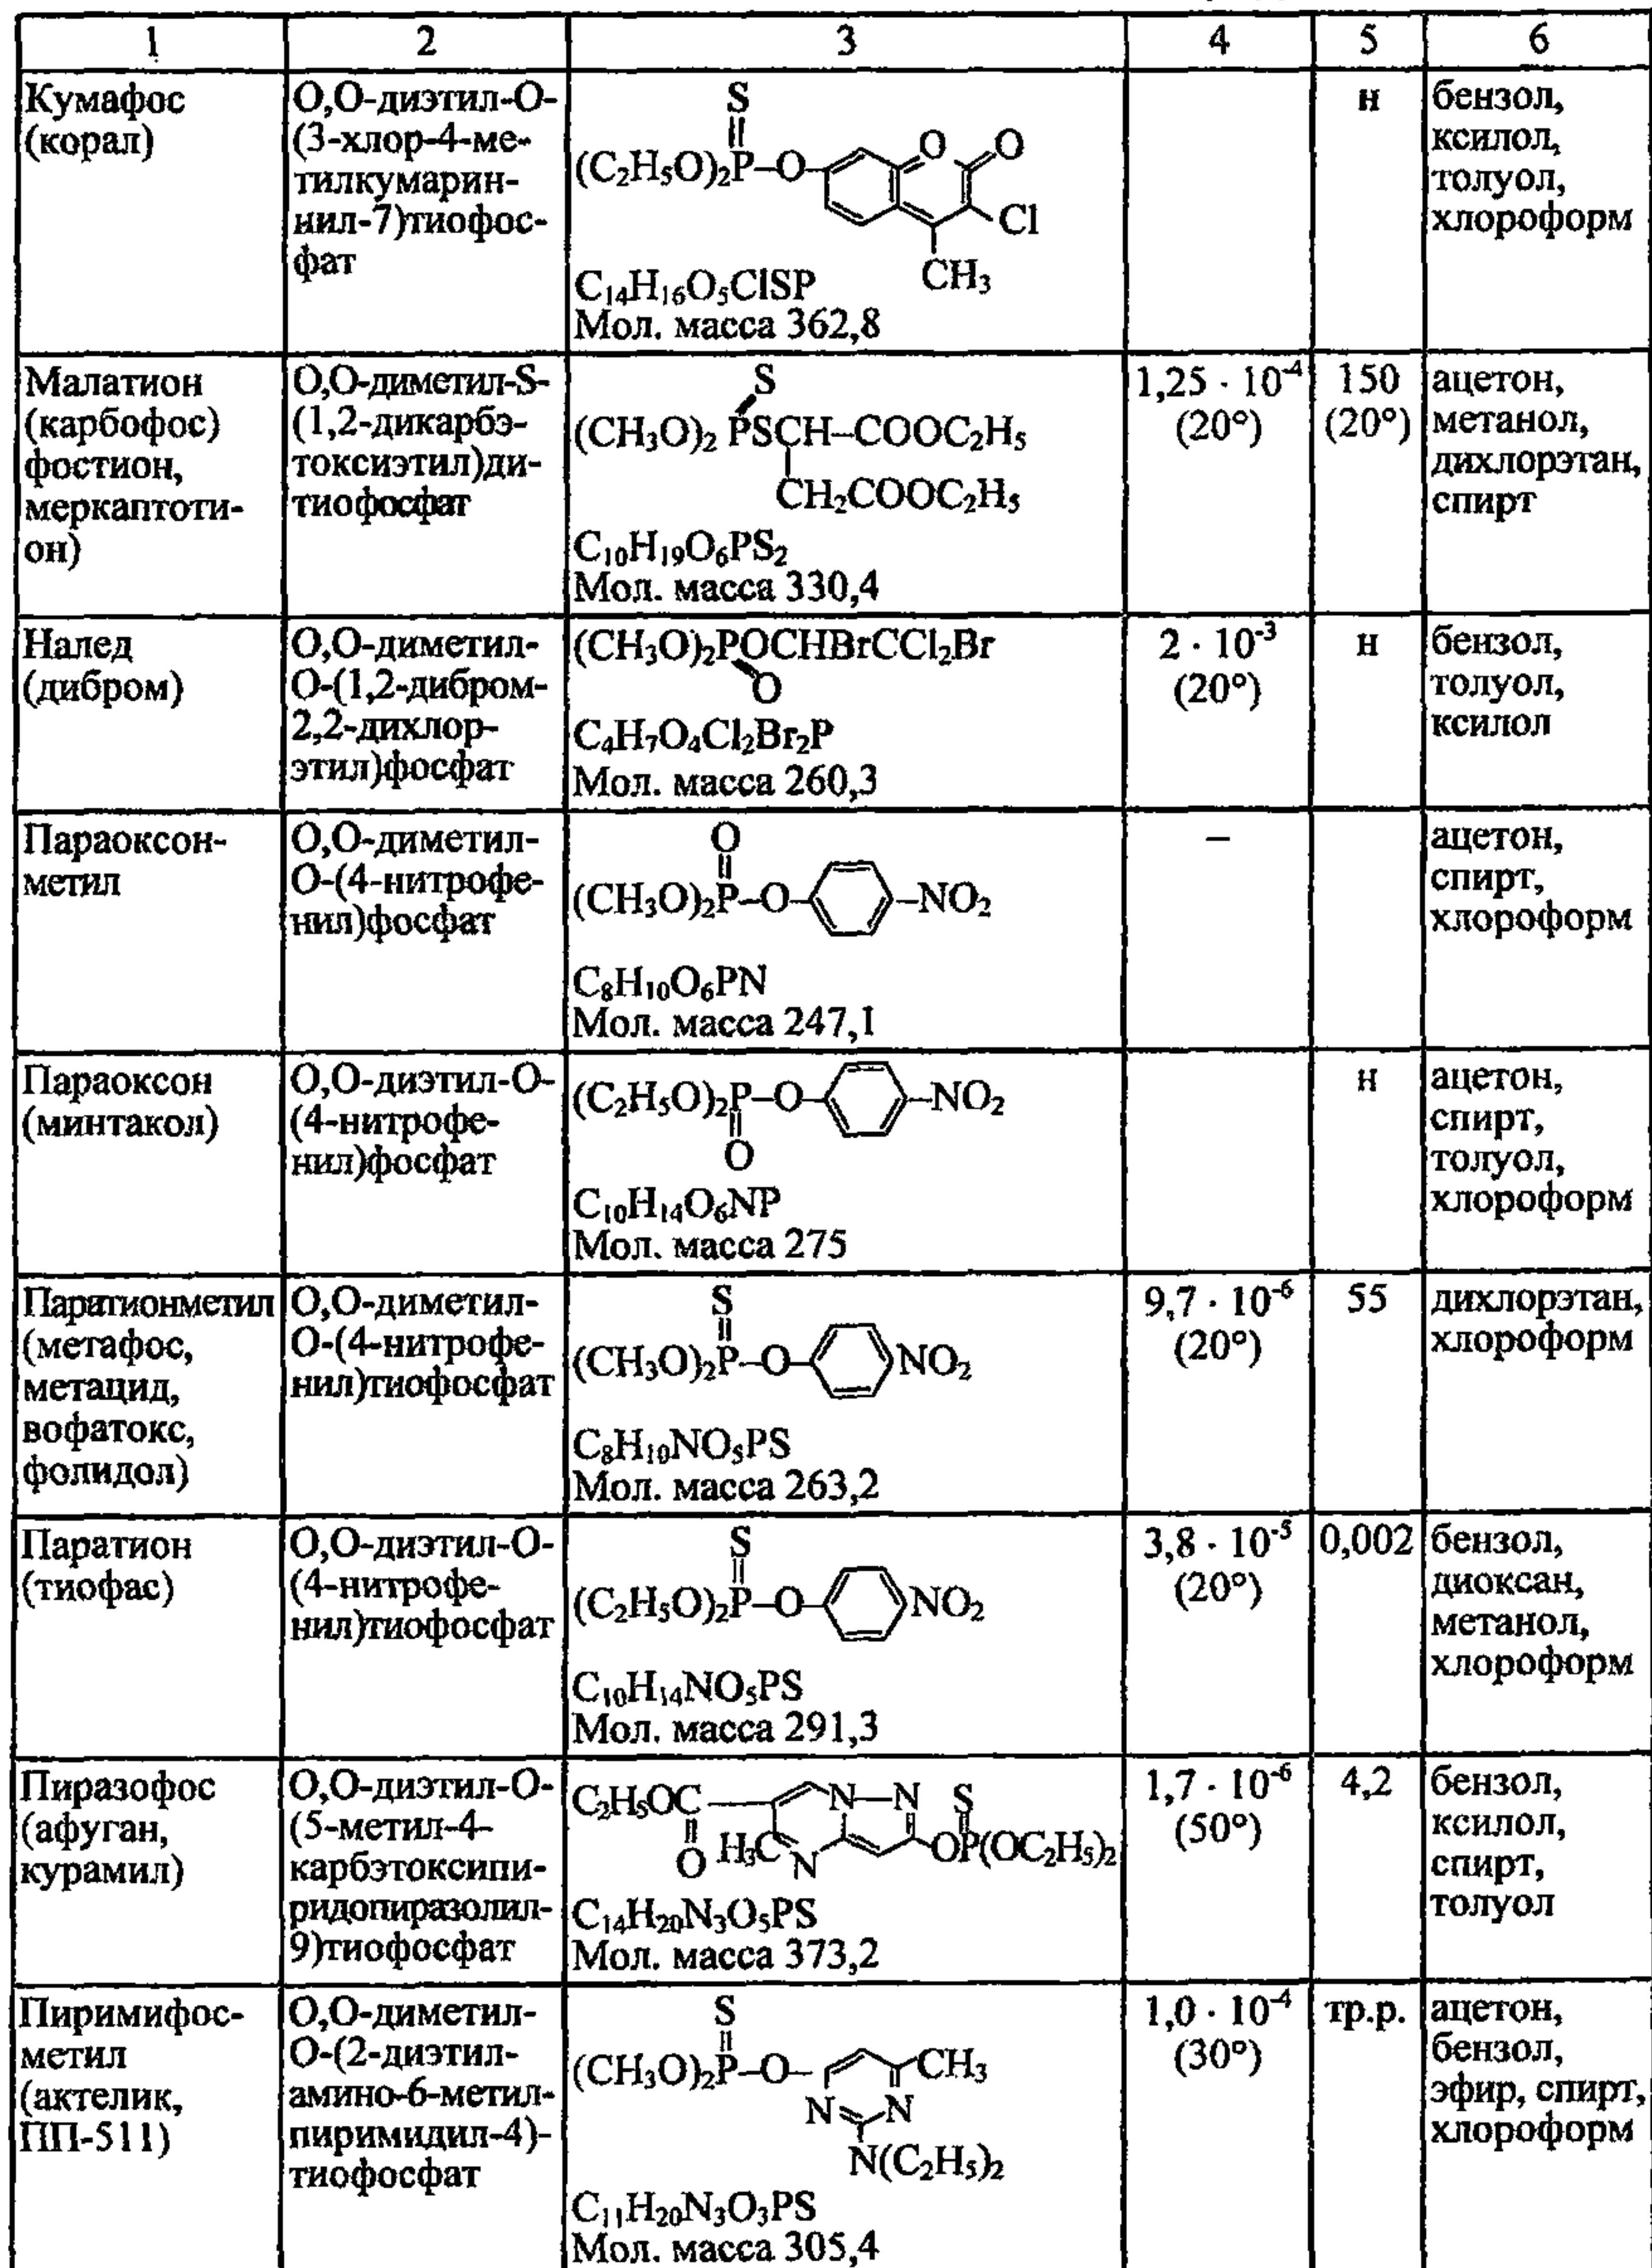 1 2 3 4 5 6
Кумафос
(корал)
О,О-диэтил-О-
(3-хлор-4-ме-
тилкумарин-
нил-7)тиофос-
фат
S
(C₂H₅O)₂P–O– O O
Cl
CH₃
C₁₄H₁₆O₅ClSP
Мол. масса 362,8
н
бензол,
ксилол,
толуол,
хлороформ
Малатион
(карбофос)
фостион,
меркаптоти-
он)
О,О-диметил-S-
(1,2-дикарбэ-
токсиэтил)ди-
тиофосфат
S
(CH₃O)₂ PSCH–COOC₂H₅
CH₂COOC₂H₅
C₁₀H₁₉O₆PS₂
Мол. масса 330,4
1,25 · 10⁻⁴
(20°)
150
(20°)
ацетон,
метанол,
дихлорэтан,
спирт
Налед
(дибром)
О,О-диметил-
О-(1,2-дибром-
2,2-дихлор-
этил)фосфат
(CH₃O)₂POCHBrCCl₂Br
O
C₄H₇O₄Cl₂Br₂P
Мол. масса 260,3
2 · 10⁻³
(20°)
н
бензол,
толуол,
ксилол
Параоксон-
метил
О,О-диметил-
О-(4-нитрофе-
нил)фосфат
O
(CH₃O)₂P–O– –NO₂
C₈H₁₀O₆PN
Мол. масса 247,1
–
ацетон,
спирт,
хлороформ
Параоксон
(минтакол)
О,О-диэтил-О-
(4-нитрофе-
нил)фосфат
(C₂H₅O)₂P–O– –NO₂
O
C₁₀H₁₄O₆NP
Мол. масса 275
н
ацетон,
спирт,
толуол,
хлороформ
Паратионметил
(метафос,
метацид,
вофатокс,
фолидол)
О,О-диметил-
О-(4-нитрофе-
нил)тиофосфат
S
(CH₃O)₂P–O– NO₂
C₈H₁₀NO₅PS
Мол. масса 263,2
9,7 · 10⁻⁶
(20°)
55
дихлорэтан,
хлороформ
Паратион
(тиофас)
О,О-диэтил-О-
(4-нитрофе-
нил)тиофосфат
S
(C₂H₅O)₂P–O– NO₂
C₁₀H₁₄NO₅PS
Мол. масса 291,3
3,8 · 10⁻⁵
(20°)
0,002
бензол,
диоксан,
метанол,
хлороформ
Пиразофос
(афуган,
курамил)
О,О-диэтил-О-
(5-метил-4-
карбэтоксипи-
ридопиразолил-
9)тиофосфат
C₂H₅OC N–N S
O H₃C N OP(OC₂H₅)₂
C₁₄H₂₀N₃O₅PS
Мол. масса 373,2
1,7 · 10⁻⁶
(50°)
4,2
бензол,
ксилол,
спирт,
толуол
Пиримифос-
метил
(актелик,
ПП-511)
О,О-диметил-
О-(2-диэтил-
амино-6-метил-
пиримидил-4)-
тиофосфат
S
(CH₃O)₂P–O– CH₃
N N
N(C₂H₅)₂
C₁₁H₂₀N₃O₃PS
Мол. масса 305,4
1,0 · 10⁻⁴
(30°)
тр.р.
ацетон,
бензол,
эфир, спирт,
хлороформ